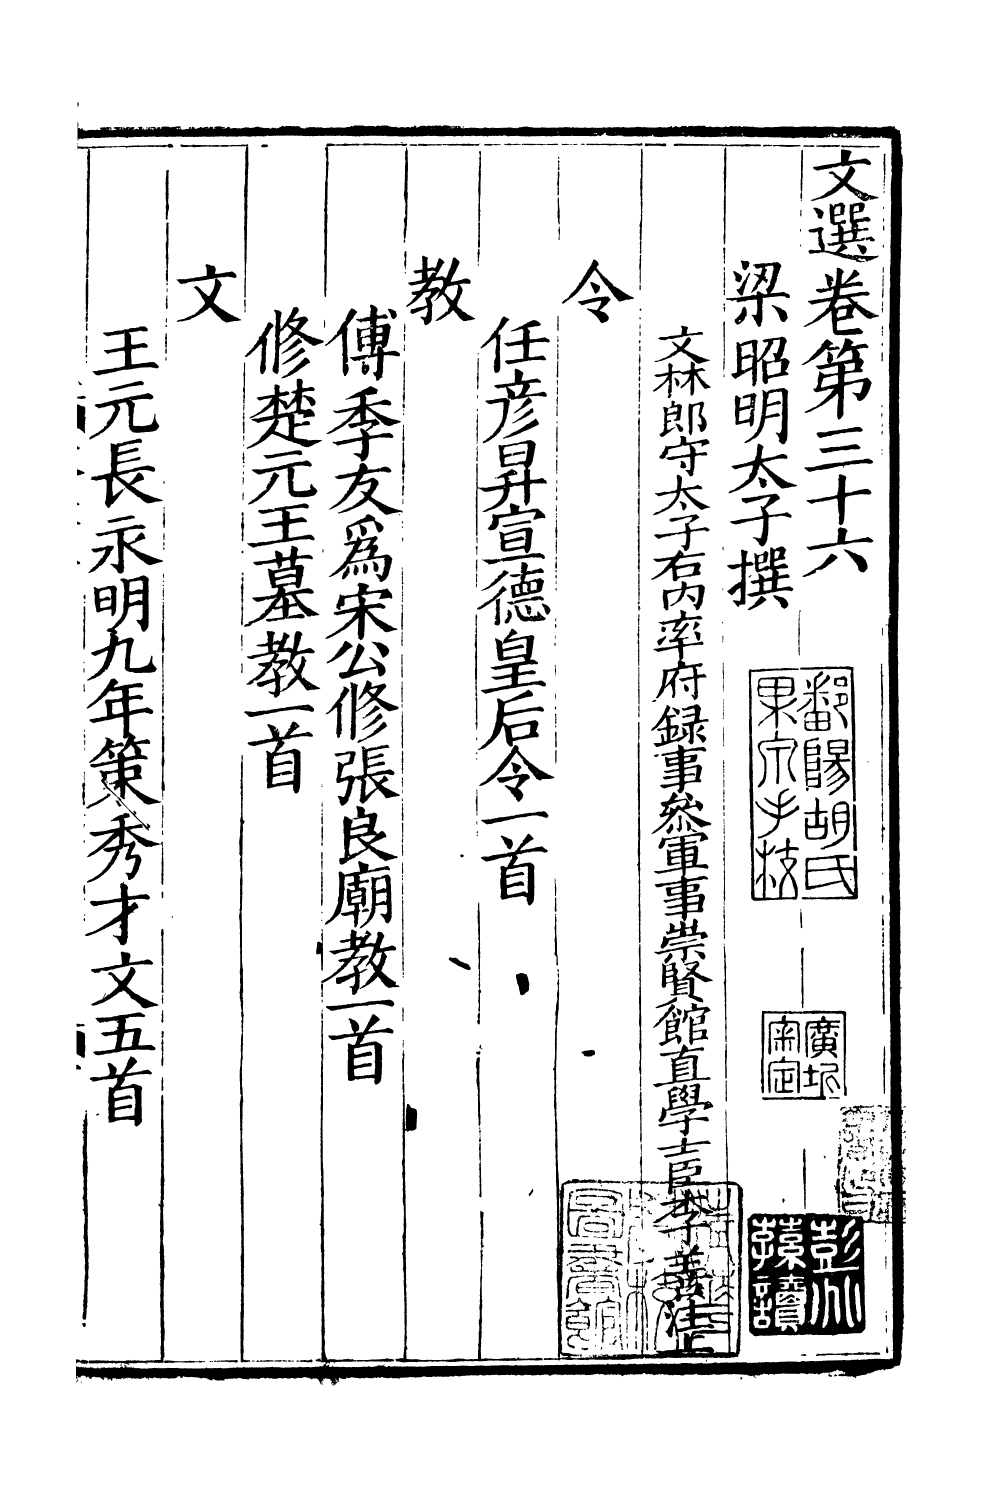 文選卷第三十六
梁昭明太子撰
文林郎守太子右內率府録事叅軍事崇賢館直學士臣李善注上
令
任彦昇宣德皇后令一首
教
傅季友爲宋公修張良廟教一首
修楚元王墓教一首
文
王元長永明九年策秀才文五首
鄱陽胡氏
果泉手校